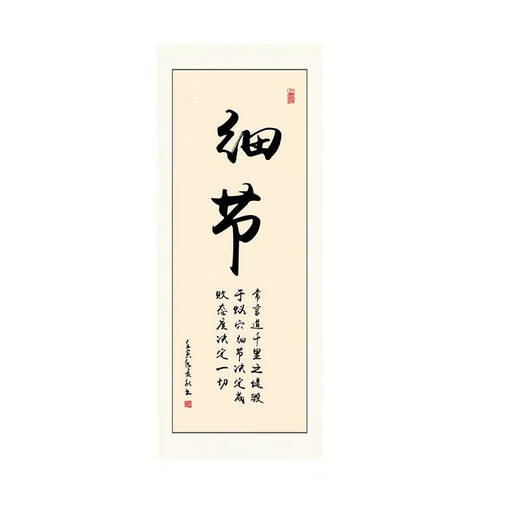 细节
常言道千里之堤毁
于蚁穴细节决定成
败态度决定一切